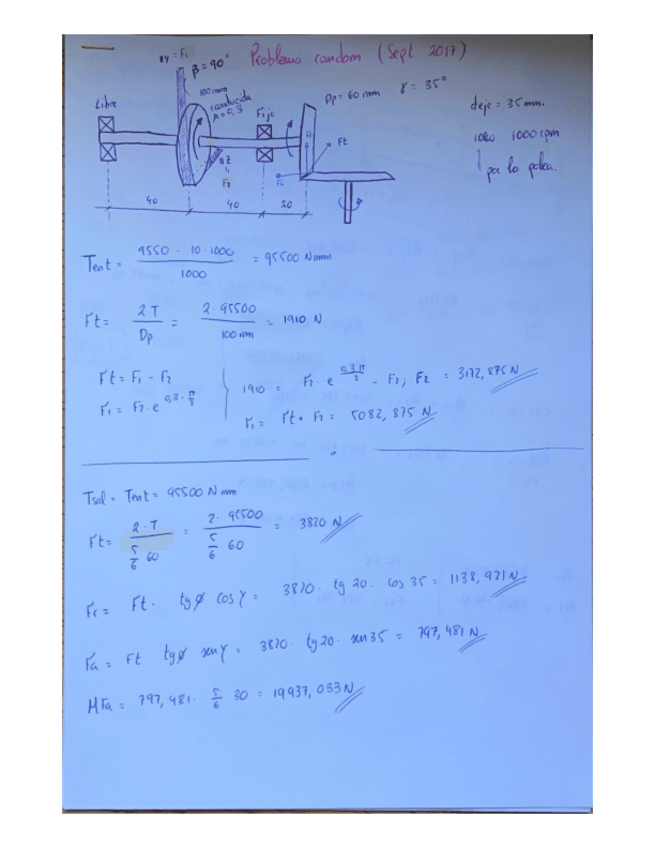 Problema random (Sept. 2017)
β = 90°
100 mm
conducida
μ = 0,3
Libre
Fijo
Dp = 60 mm
γ = 35°
deje = 35 mm.
10 kW 1000 rpm
por la polea.
Ft
40 40 20
Tent = 9550 · 10 · 1000 / 1000 = 95500 Nmm
Ft = 2T / Dp = 2 · 95500 / 100 mm = 1910 N
Ft = F1 - F2
F1 = F2 · e^0,3 · π/2
1910 = F2 · e^0,3π/2 - F2; F2 = 3172,875 N
F1 = Ft + F2 = 5082,875 N
Tsal = Tent = 95500 Nmm
Ft = 2 · T / 5/6 60 = 2 · 95500 / 5/6 60 = 3820 N
Fr = Ft · tgφ cosγ = 3820 · tg 20 · cos 35 = 1138,921 N
Fa = Ft tgφ senγ = 3820 · tg 20 · sen 35 = 797,481 N
MFa = 797,481 · 5/6 30 = 19937,033 N